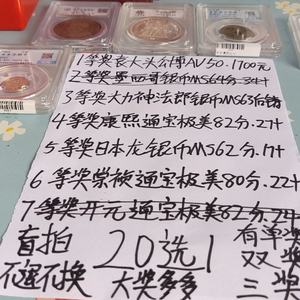 1等奖袁大头公博AU50.1700元
2等奖墨西哥银币MS64分.34+
3等奖大力神法郎银币MS63后铸
4等奖康熙通宝极美82分.27+
5等奖日本龙银币MS62分.17+
6等奖崇祯通宝极美80分.22+
7等奖开元通宝极美82分.24+
盲拍
20选1
有单奖
不退不换
大奖多多
双奖
三奖